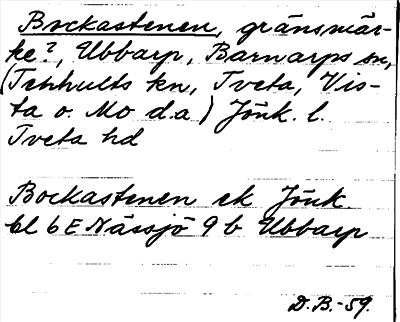 Bockastenen, gränsmär-
ke?, Ubbarp, Barnarps sn,
(Tenhults kn, Tveta, Vis-
ta o. Mo d.a) Jönk. l.
Tveta hd
Bockastenen ek Jönk
bl 6E Nässjö 9 b Ubbarp
D.B.-59.